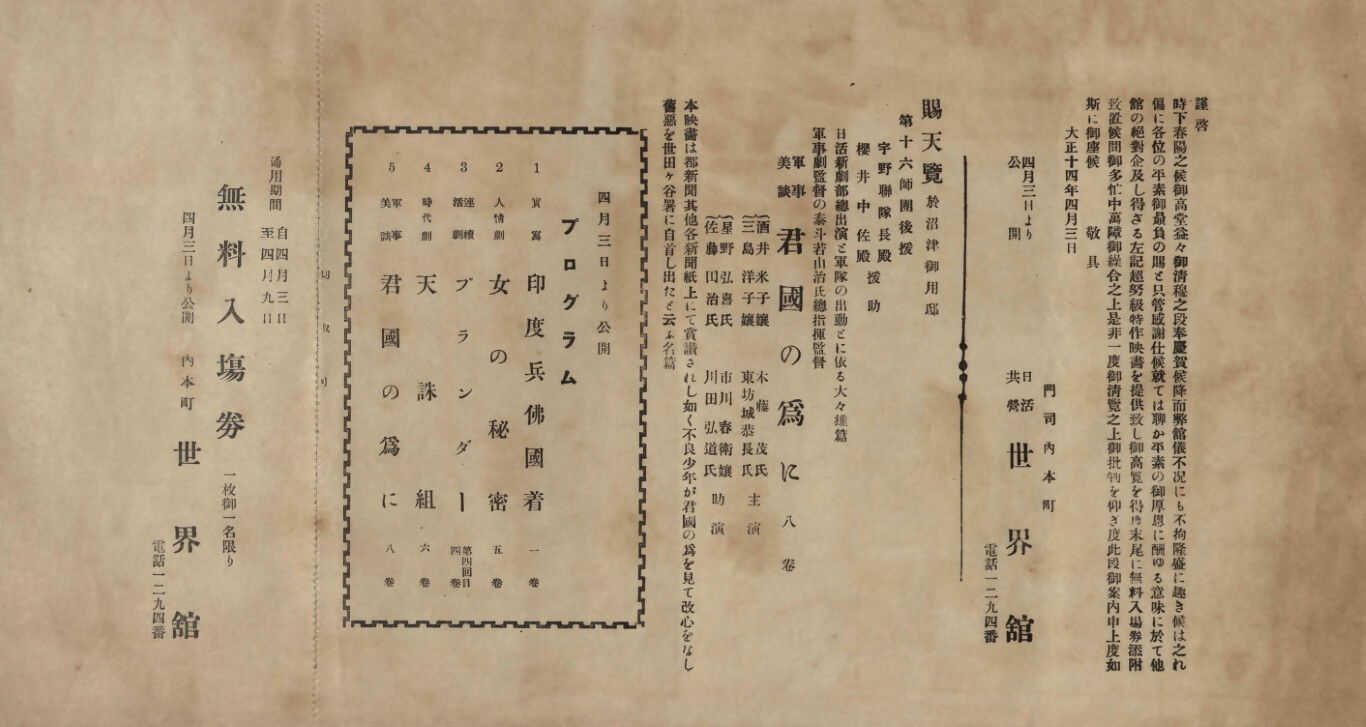 謹啓
時下春陽之候御高堂益々御清穆之段奉慶賀候降而弊館儀不況にも不拘隆盛に趣き候は之れ
偏に各位の平素御最負の賜と只管感謝仕候就ては聊か平素の御厚恩に酬ゆる意味に於て他
館の絶對企及し得ざる左記超弩級特作映畫を提供致し御高覽を得度末尾に無料入場券添附
致置候間御多忙中萬障御繰合之上是非一度御清覽之上御批判を仰ぎ度此段御案内申上度如
斯に御座候 敬具
大正十四年四月三日
門司内本町
四月三日より公開 日活共營 世界舘
電話一二九四番
賜天覽 於沼津御用邸
第十六師團後援
宇野聯隊長殿
櫻井中佐殿 援助
日活新劇部總出演と軍隊の出動とに依る大々雄篇
軍事劇監督の泰斗若山治氏總指揮監督
軍事美談 君國の爲に 八卷
酒井米子孃 木藤茂氏
三島洋子孃 東坊城恭長氏 主演
星野弘喜氏 市川春衛孃
佐藤円治氏 川田弘道氏 助演
本映畵は都新聞其他各新聞紙上にて賞讃されし如く不良少年が君國の爲を見て改心をなし
舊惡を世田ヶ谷署に自首し出たと云ふ名篇
四月三日より公開
プログラム
1 實寫 印度兵佛國着 一卷
2 人情劇 女の秘密 五卷
3 連續活劇 ブランダー 第四回目四卷
4 時代劇 天誅組 六卷
5 軍事美談 君國の爲に 八卷
切取り
通用期間 自四月三日 至四月九日
無料入塲券 一枚御一名限り
四月三日より公開 内本町 世界舘
電話一二九四番